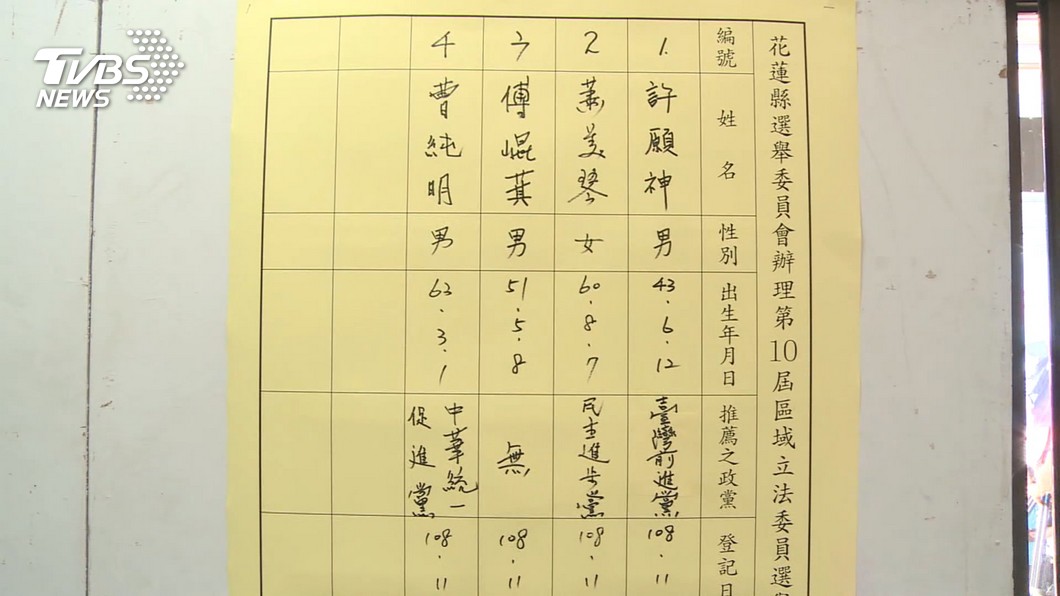 TVBS
NEWS
花蓮縣選舉委員會辦理第10屆區域立法委員選
編號
姓名
性別
出生年月日
推薦之政黨
登記日
1.
許願神
男
43.6.12
臺灣前進黨
108.11
2
蕭美琴
女
60.8.7
民主進步黨
108.11
3
傅崐萁
男
51.5.8
無
108.11
4
曹純明
男
63.3.1
中華統一
促進黨
108.11